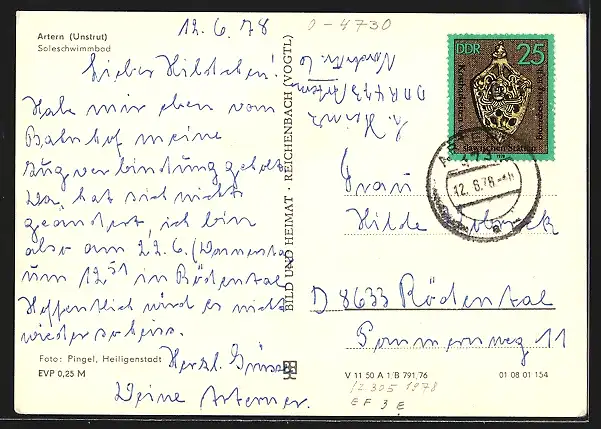 12.6.78
0-4730
Artern (Unstrut)
Soleschwimmbad
Lieber Hildchen!
Habe mir eben vom
Bahnhof meine
Zugverbindung geholt.
Da hat sich nichts
geändert, ich bin
also am 22.6. (Donnerstag
um 12 51 in Rödental
Hoffentlich wird es nicht
wieder so heiss.
Herzl. Grüsse
Deine Arterner.
Foto: Pingel, Heiligenstadt
EVP 0,25 M
BILD UND HEIMAT · REICHENBACH (VOGTL)
DDR 473 Artern
DDR 25
slawischen Stätten
ARTERN
473
12.6.78
a
Frau
Hilde
D 8633 Rödental
Pommernweg 11
V 11 50 A 1 B 791/76
01 08 01 154
12.305 1978
EF 3 E